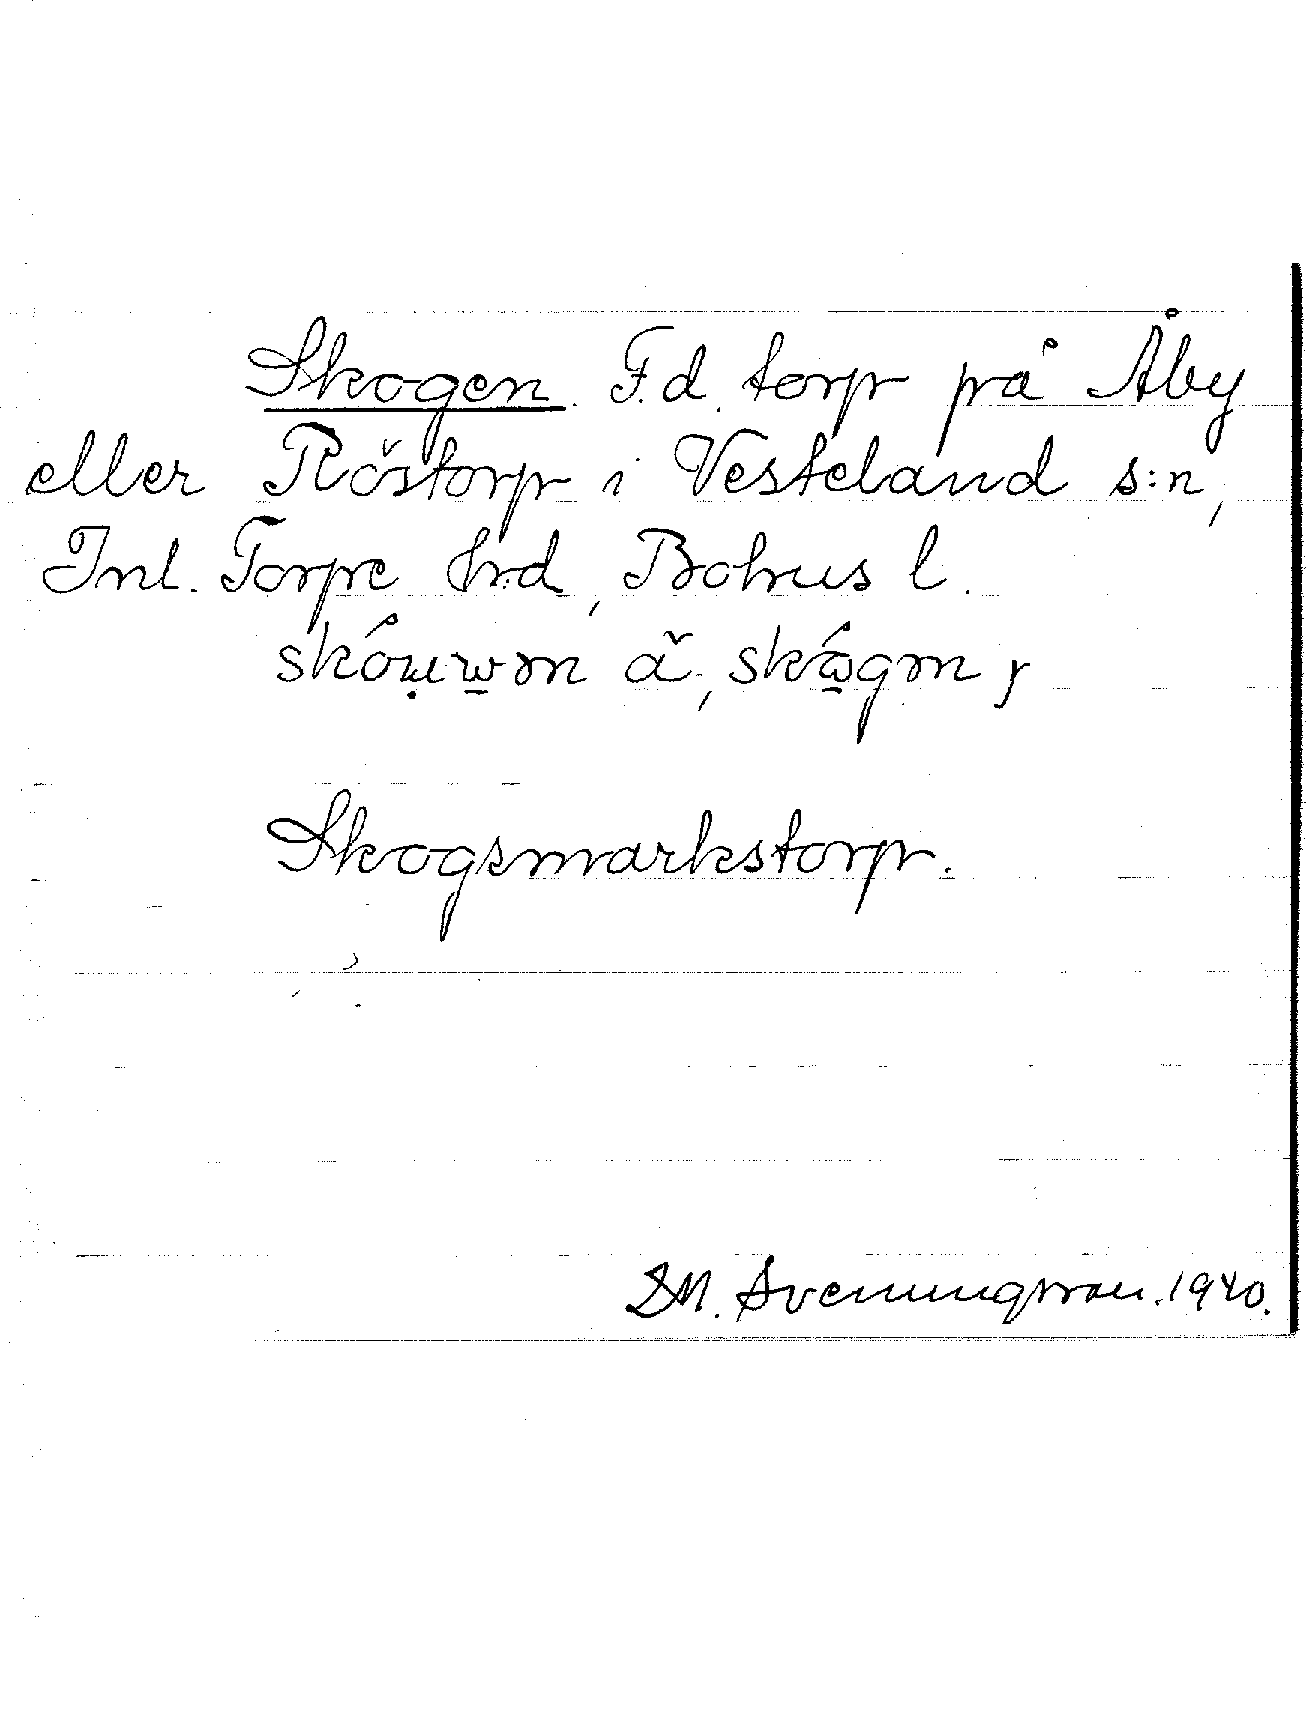 Skogen. F.d. torp på Åby
eller Röstorp i Vesteland s:n,
Inl. Torpe hrd, Bohus l.
skóuwm ä, skógm y
Skogsmarkstorp.
SM. Svenungsson. 1940.